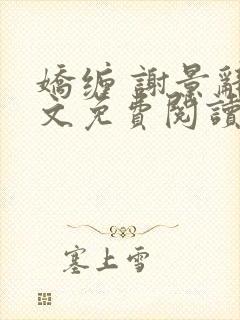 嬌缠 謝景辭
文免費閱讀
塞上雪